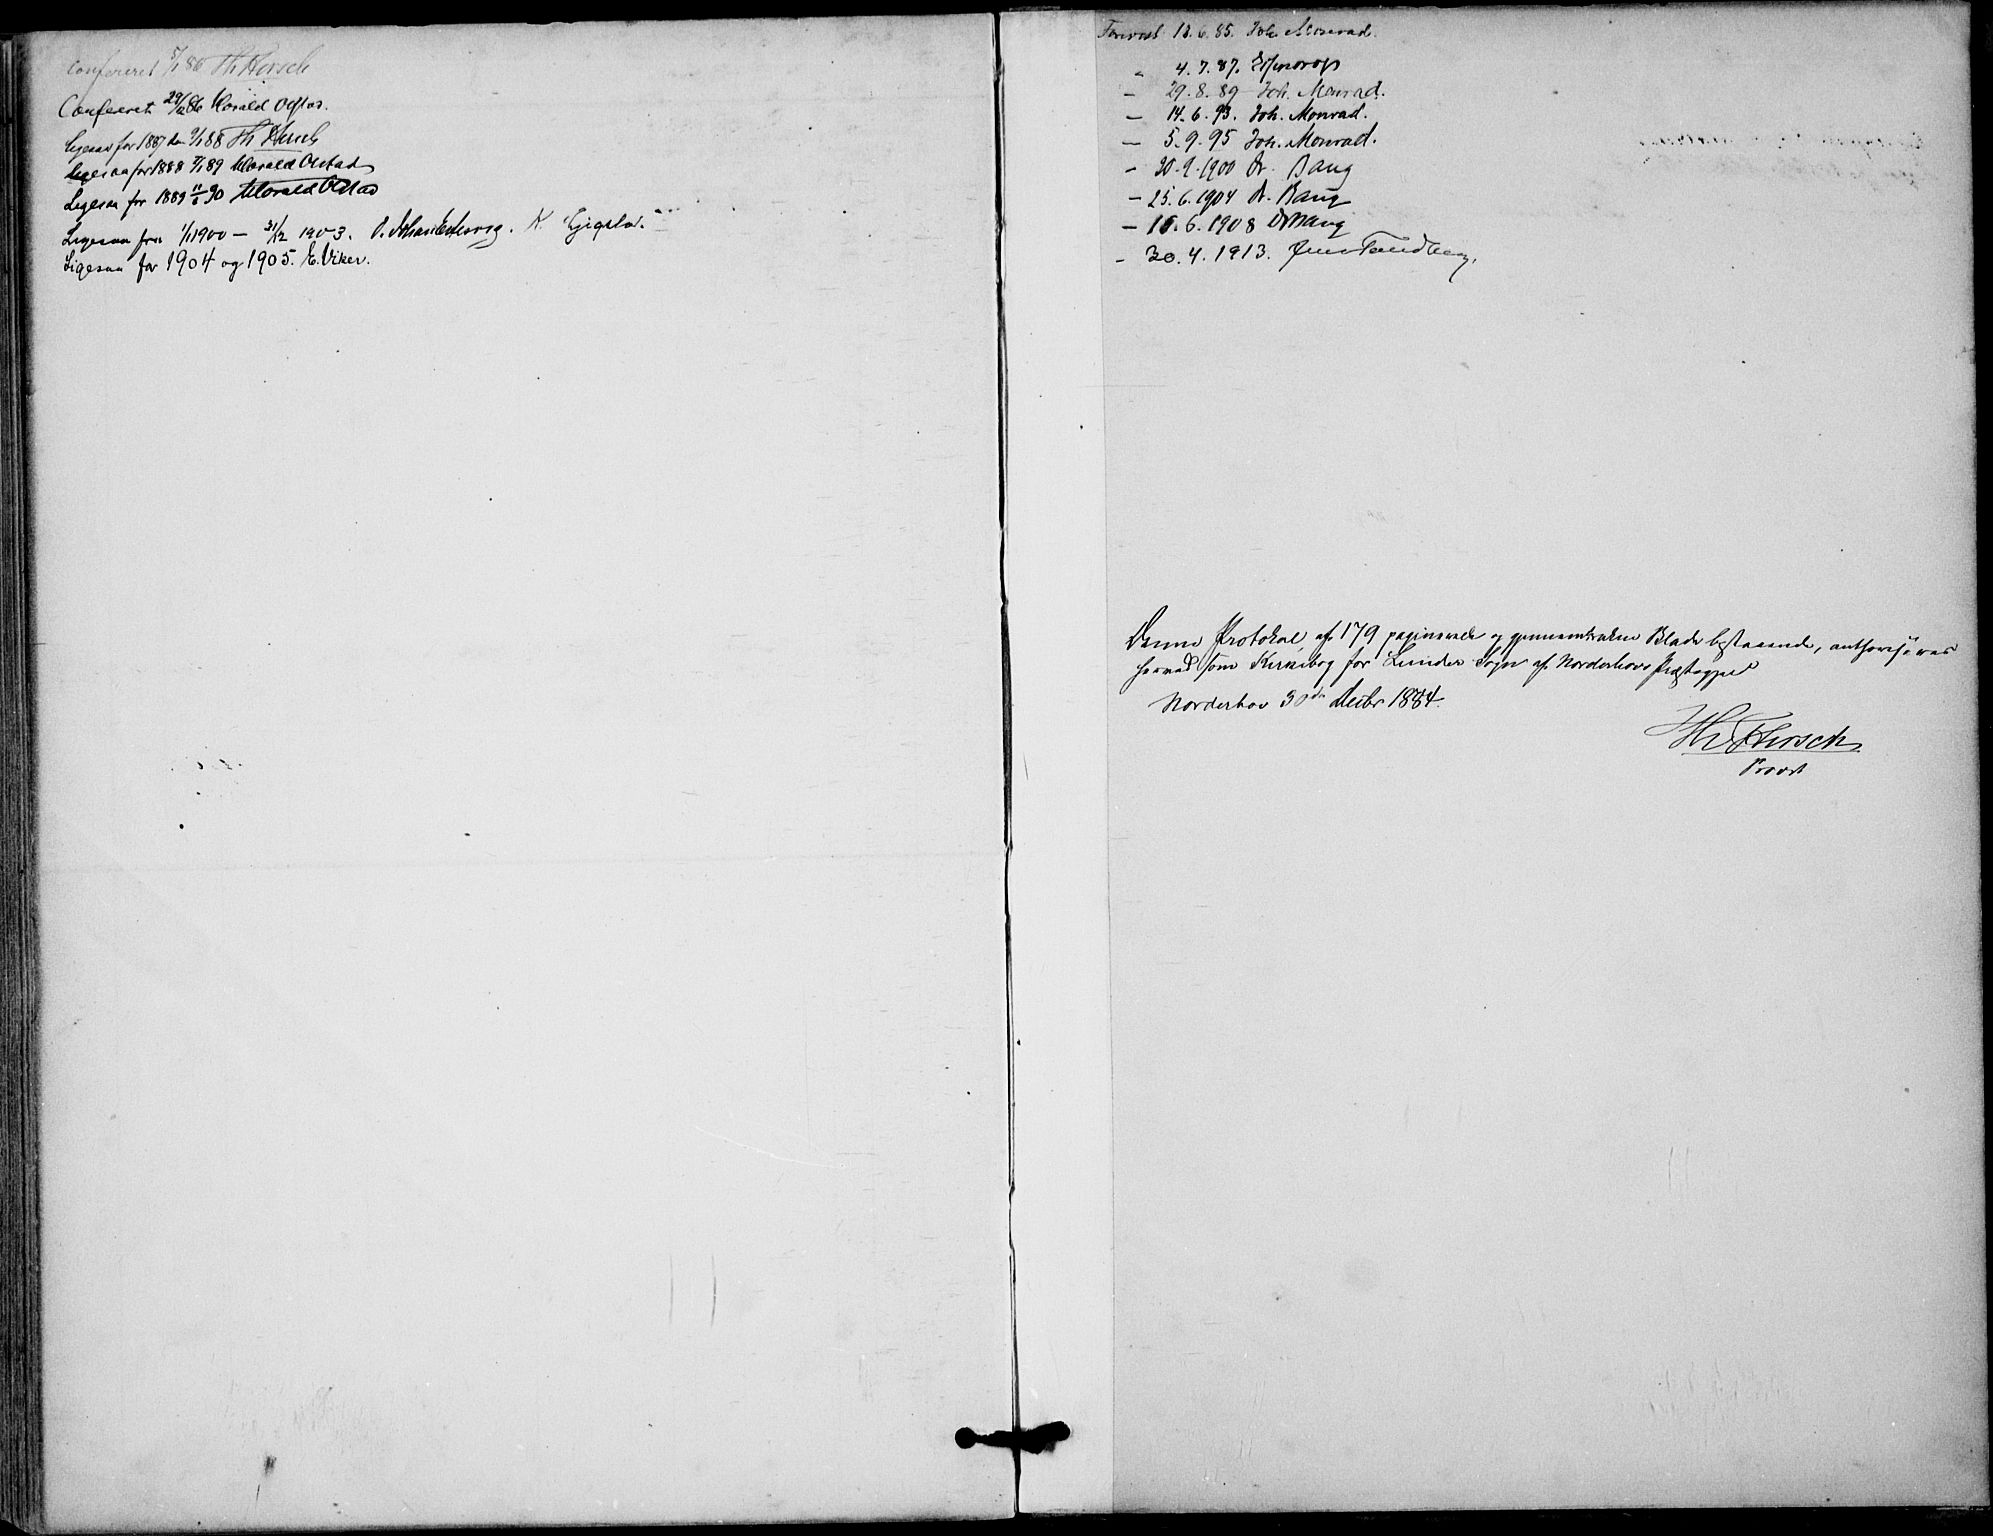 Confereret 5/1 86 Th Hersch
Confereret 29/12 86 Harald Olstad.
Ligesaa for 1887 den 9/1 88 Th Hersch
Ligesaa for 1888 7/1 89 Harald Olstad
Ligesaa for 1889 11/1 90 Harald Olstad
Ligesaa fra 1/1 1900 – 31/12 1903.
Ligesaa for 1904 og 1905. E. Viker.
Forevist 13.6.85. Joh. Monrad.
" 4.7.87. Essendrop
– 29.8.89 Joh. Monrad.
– 14.6.93. Joh. Monrad.
– 5.9.95 Joh. Monrad.
– 20.9.1900 A. Bang
– 25.6.1904 A. Bang
– 15.6.1908 A Bang
– 30.4.1913. Jens Tandberg.
Denne Protokol, af 179 paginerede og gjennemdragne Blade bestaaende, authoriseres
herved som Kirkebog for Lunder Sogn af Norderhovs Præstegjeld
Norderhov 30de Decbr 1884.
Th. Hersch
Provst